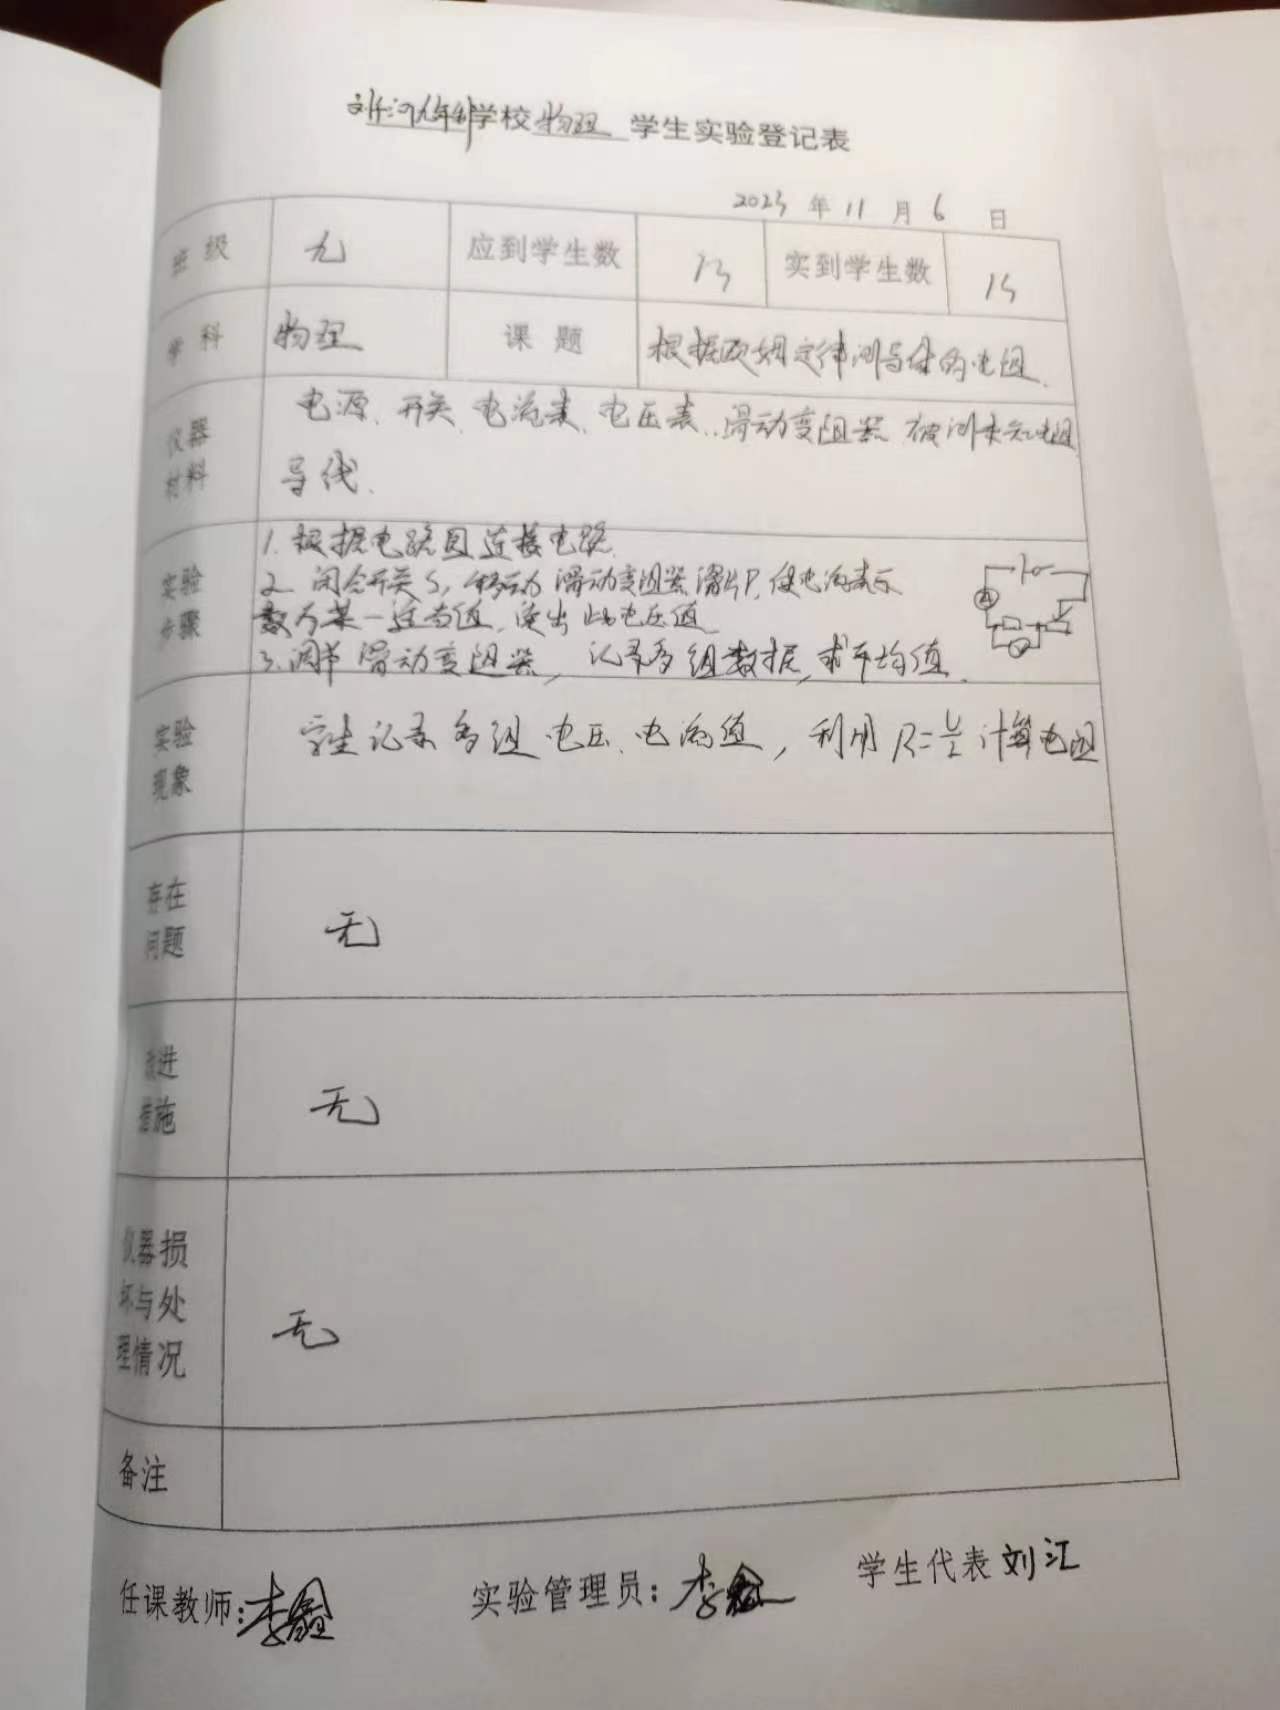 九年制学校物理 学生实验登记表
2023 年 11 月 6 日
班 级 九 应到学生数 13 实到学生数 13
学 科 物理 课 题 根据欧姆定律测导体的电阻.
仪器
材料
电源、开关、电流表、电压表、滑动变阻器、被测未知电阻
导线.
实验
步骤
1. 根据电路图连接电路
2. 闭合开关S, 移动滑动变阻器滑片P, 使电流表示
数为某一适当值, 读出此电压值
3. 调节滑动变阻器, 记录多组数据, 求平均值.
A
V
实验
现象
学生记录多组电压、电流值, 利用 R=U/I 计算电阻
存在
问题
无
改进
措施
无
仪器损
坏与处
理情况
无
备注
任课教师: 李鑫 实验管理员: 李鑫 学生代表 刘汇